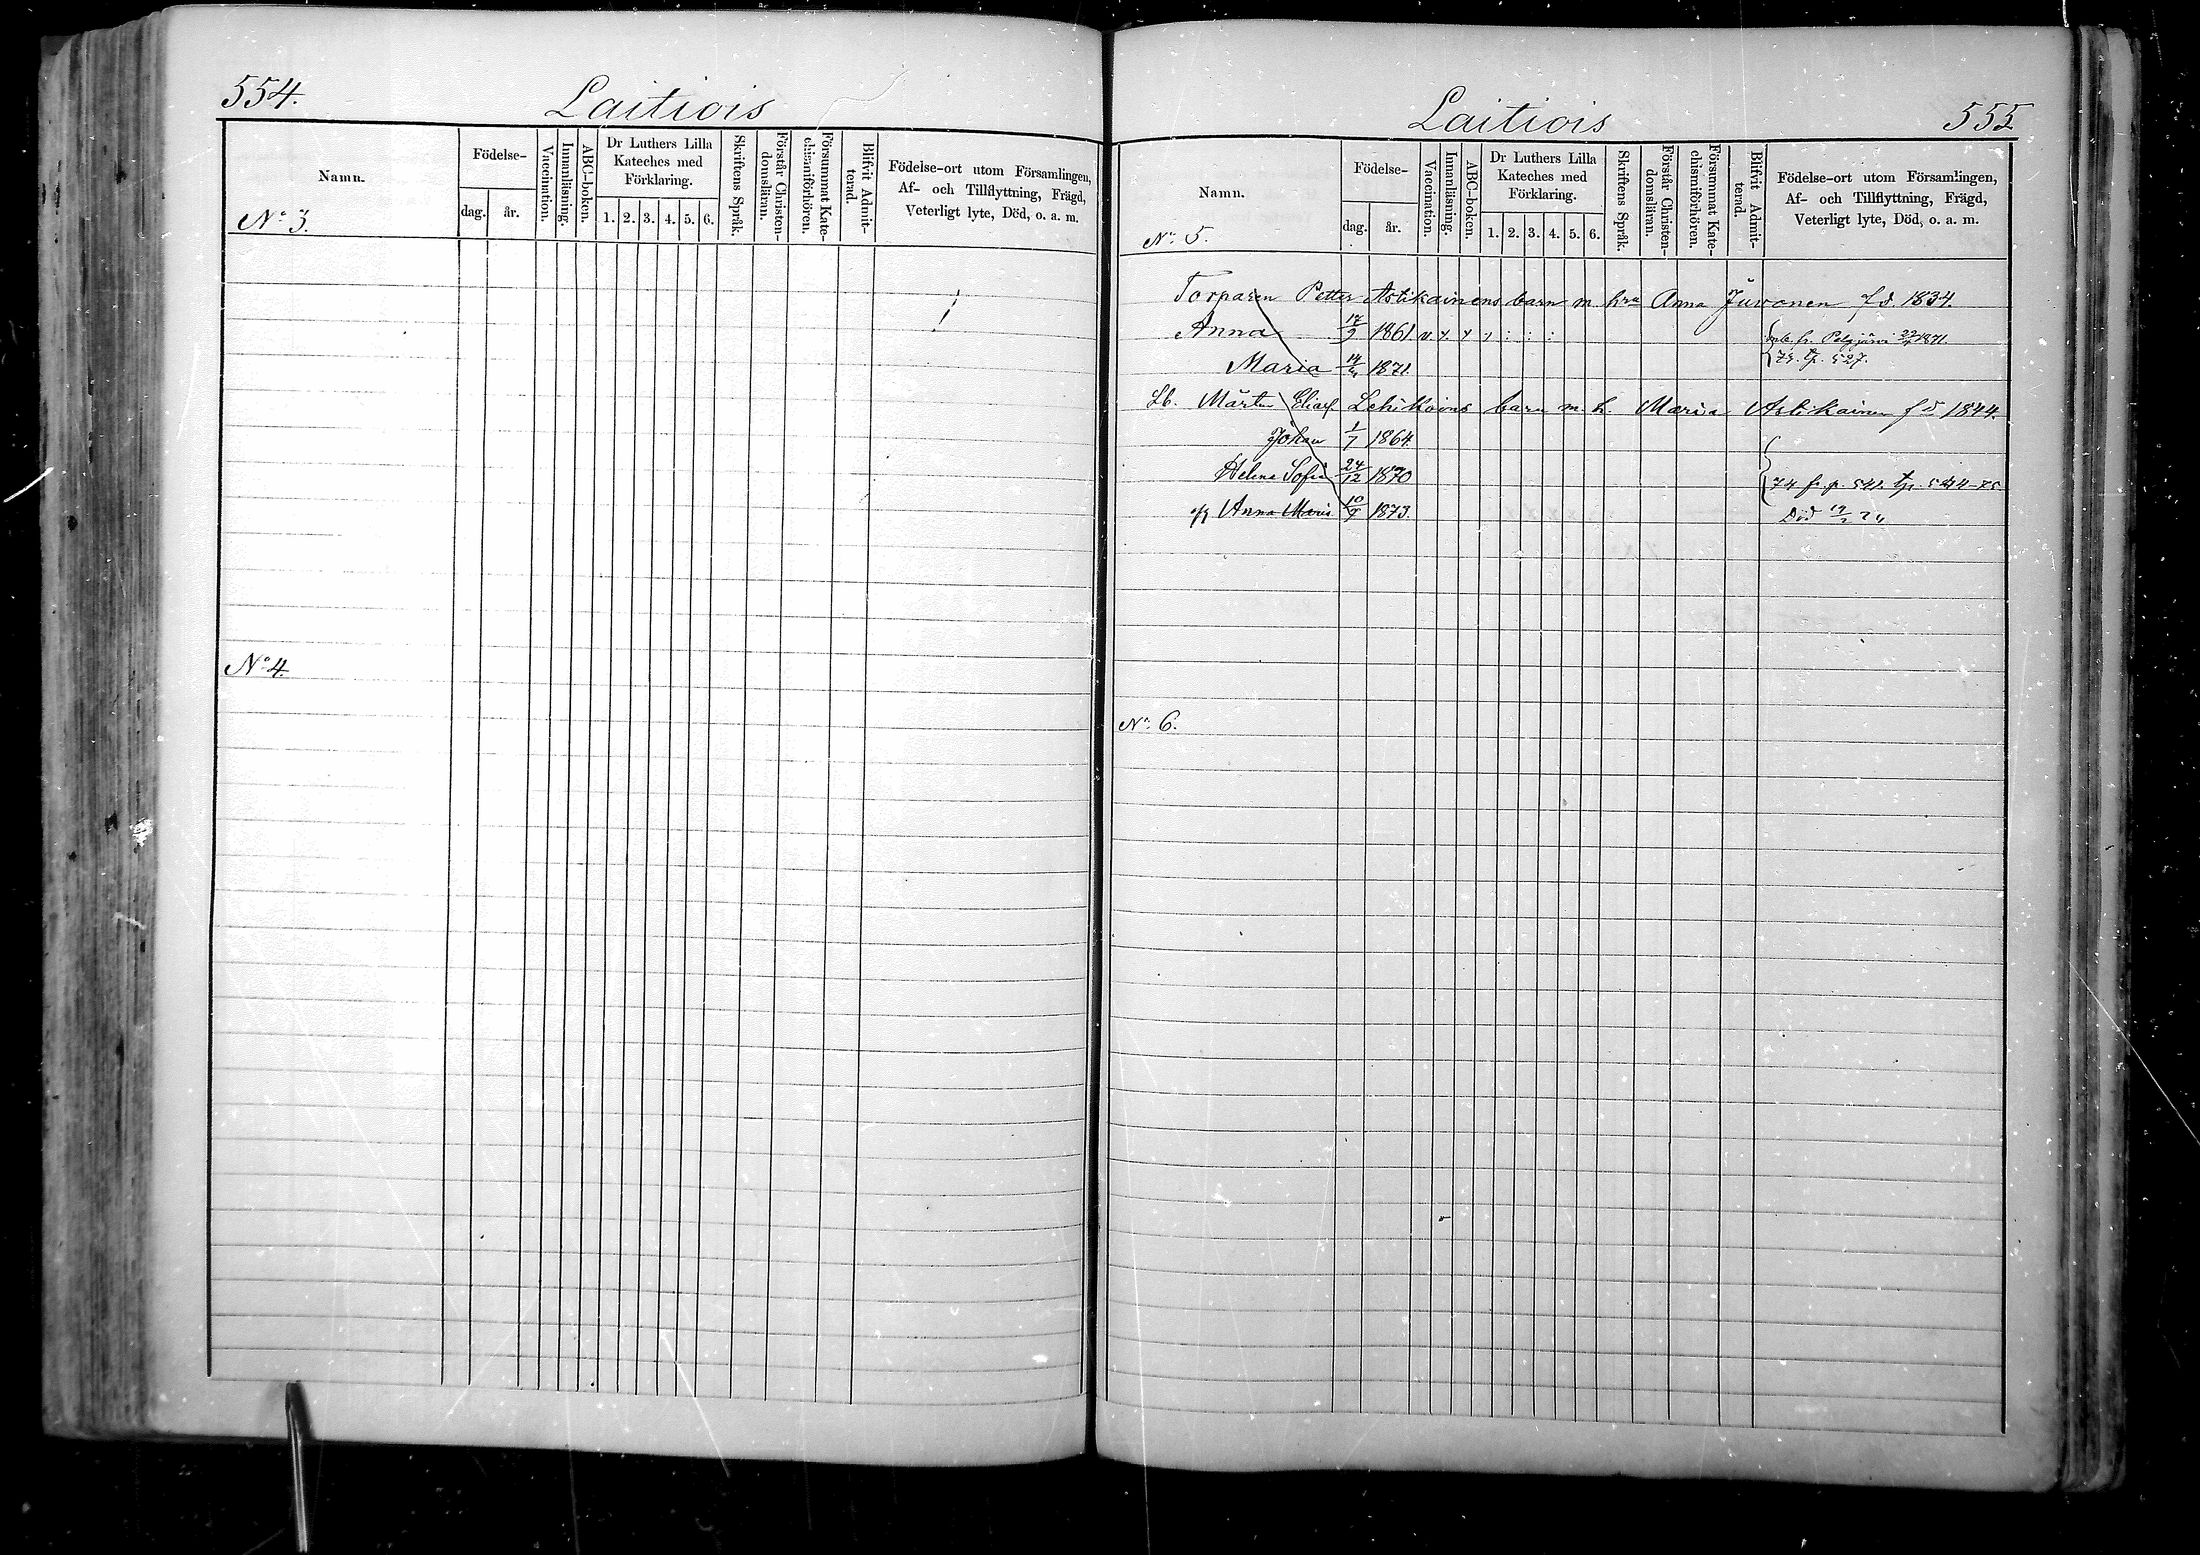 554.
Laitiois
Namn.
Födelse-
dag.
år.
Vaccination.
Innanläsning.
ABC-boken.
Dr Luthers Lilla
Kateches med
Förklaring.
1. 2. 3. 4. 5. 6.
Skriftens Språk.
Förstår Christen-
domsläran.
Försummat Kate-
chismiförhören.
Blifvit Admit-
terad.
Födelse-ort utom Församlingen,
Af- och Tillflyttning, Frägd,
Veterligt lyte, Död, o. a. m.
No 3.
No 4.
Laitiois
555
Namn.
Födelse-
dag.
år.
Vaccination.
Innanläsning.
ABC-boken.
Dr Luthers Lilla
Kateches med
Förklaring.
1. 2. 3. 4. 5. 6.
Skriftens Språk.
Förstår Christen-
domsläran.
Försummat Kate-
chismiförhören.
Blifvit Admit-
terad.
Födelse-ort utom Församlingen,
Af- och Tillflyttning, Frägd,
Veterligt lyte, Död, o. a. m.
No 5.
Torparen Petter Astikainens barn m. hru Anna Juvonen fd. 1834.
Anna 17/9 1861 fr. Pelgjärvi 1871.
Maria 1871. 527.
Lb. Mårten Eliaß. Lehikoins barn m. h. Maria Astikainen fd 1844.
Johan 1/7 1864.
Helena Sofia 24/12 1870 74 fr. p. 541. 544-75
Anna Maria 1873. Död
No 6.